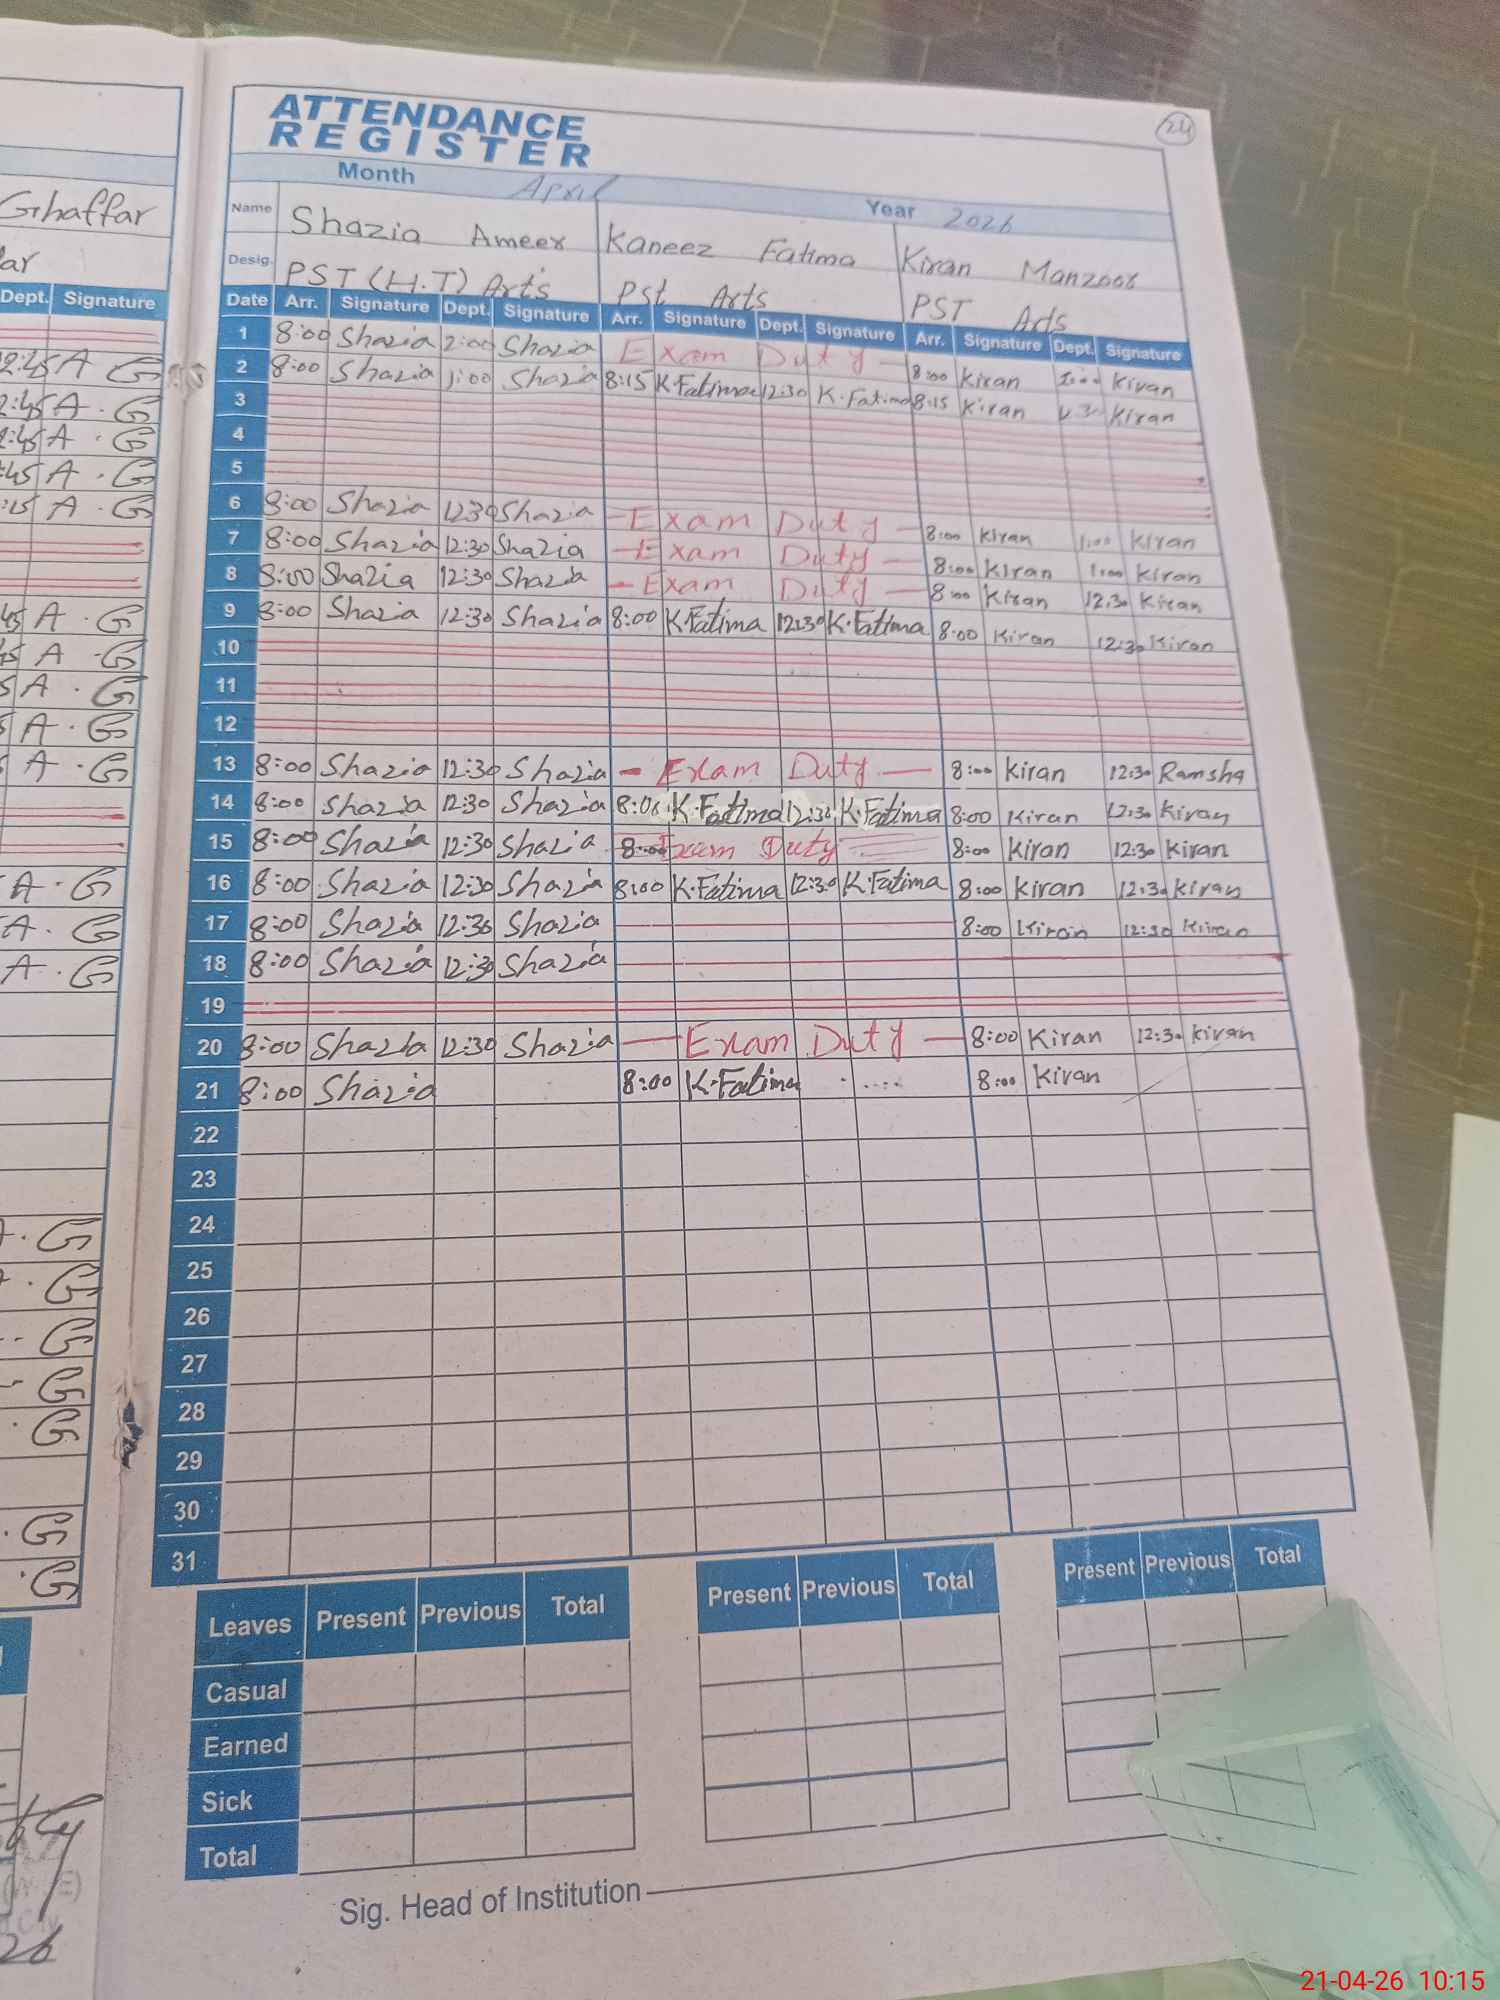 ATTENDANCE
REGISTER
24
Month April Year 2026
Name Shazia Ameer Kaneez Fatima Kiran Manzoor
Desig. PST (H.T) Arts Pst Arts PST Arts
Date Arr. Signature Dept. Signature Arr. Signature Dept. Signature Arr. Signature Dept. Signature
1 8:00 Shazia 2:00 Shazia Exam Duty 8:00 Kiran Kiran
2 8:00 Shazia 1:00 Shazia 8:15 K.Fatima 12:30 K.Fatima 8:15 Kiran Kiran
3
4
5
6 8:00 Shazia 12:30 Shazia Exam Duty 8:00 Kiran 1:00 Kiran
7 8:00 Shazia 12:30 Shazia Exam Duty 8:00 Kiran 1:00 Kiran
8 8:00 Shazia 12:30 Shazia Exam Duty 8:00 Kiran 12:30 Kiran
9 8:00 Shazia 12:30 Shazia 8:00 K.Fatima 12:30 K.Fatima 8:00 Kiran 12:30 Kiran
10
11
12
13 8:00 Shazia 12:30 Shazia Exam Duty 8:00 Kiran 12:30 Ramsha
14 8:00 Shazia 12:30 Shazia K.Fatima 12:30 K.Fatima 8:00 Kiran 12:30 Kiran
15 8:00 Shazia 12:30 Shazia 8:00 Exam Duty 8:00 Kiran 12:30 Kiran
16 8:00 Shazia 12:30 Shazia 8:00 K.Fatima 12:30 K.Fatima 8:00 Kiran 12:30 Kiran
17 8:00 Shazia 12:30 Shazia 8:00 Kiran 12:30 Kiran
18 8:00 Shazia 12:30 Shazia
19
20 8:00 Shazia 12:30 Shazia Exam Duty 8:00 Kiran 12:30 Kiran
21 8:00 Shazia 8:00 K.Fatima 8:00 Kiran
22
23
24
25
26
27
28
29
30
31
Leaves Present Previous Total Present Previous Total Present Previous Total
Casual
Earned
Sick
Total
Sig. Head of Institution
Ghaffar
Dept. Signature
2:45 A G
2:45 A . G
2:45 A . G
:45 A . G
:15 A . G
45 A . G
45 A . G
5 A . G
5 A . G
A . G
A . G
A . G
A . G
. G
. G
. G
G
. G
. G
. G
26
21-04-26 10:15